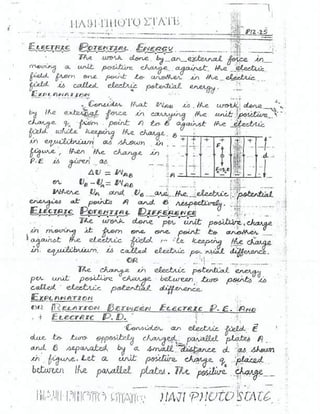 HAJI-PHOTO STATE
P12-25
ELECTRIC POTENTIAL ENERGY
The work done by an external force in
moving a unit positive charge against the electric
field from one point to another in the electric
field is called electric potential energy.
EXPLANATION
Consider that WAB is the work done
by the external force in carrying the unit positive
charge q. from point A to B against the electric
field while keeping the charge
in equilibrium as shown in
figure, then the change in
P.E is given as
ΔU = WAB
or UB - UA = WAB
Where UA and UB are the electric potential
energies at points A and B respectively.
ELECTRIC POTENTIAL DIFFERENCE
The work done per unit positive charge
in moving it from one one point to another
against the electric field keeping the charge
in equilibrium is called electric potential difference.
OR
The change in electric potential energy
per unit positive charge between two points is
called electric potential difference
EXPLANATION
OR RELATION BETWEEN ELECTRIC P.E. AND
ELECTRIC P.D.
Consider an electric field E
due to two oppositely charged parallel plates A
and B separated by a small distance d as shown
in figure. Let a unit positive charge q. placed
between the parallel plates. The positive charge
HAJI PHOTO STATE